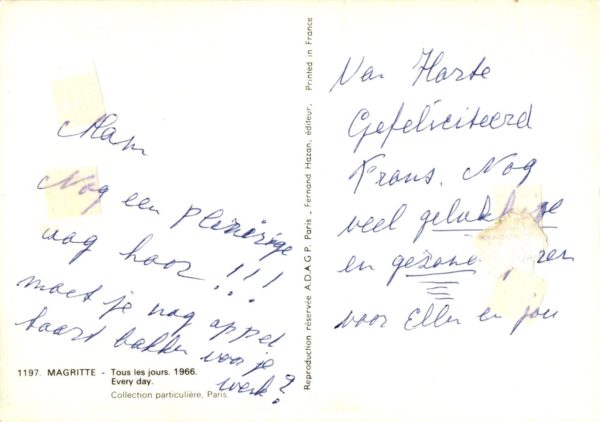 Mam
Nog een plezierige
dag hoor!!!
moet je nog appel
taart bakken voor je
werk?
1197. MAGRITTE - Tous les jours. 1966.
Every day.
Collection particulière, Paris.
Reproduction réservée A.D.A.G.P. Paris - Fernand Hazan, éditeur, Printed in France
Van Harte
Gefeliciteerd
Frans. Nog
veel gelukkige
en
voor Ellen en jou